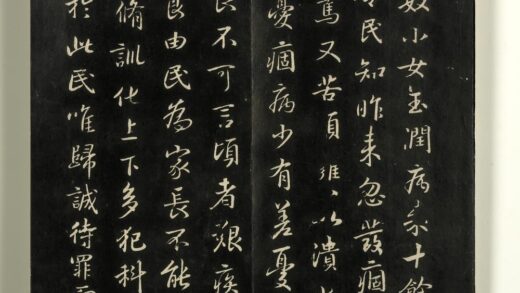 奴小女玉潤病來十餘
令民知昨來忽發痼
篤又苦頭癰〻以潰
憂痼病少有差憂
良不可言頃者艱疾
良由民為家長不能
脩訓化上下多犯科
於此民唯歸誠待罪而